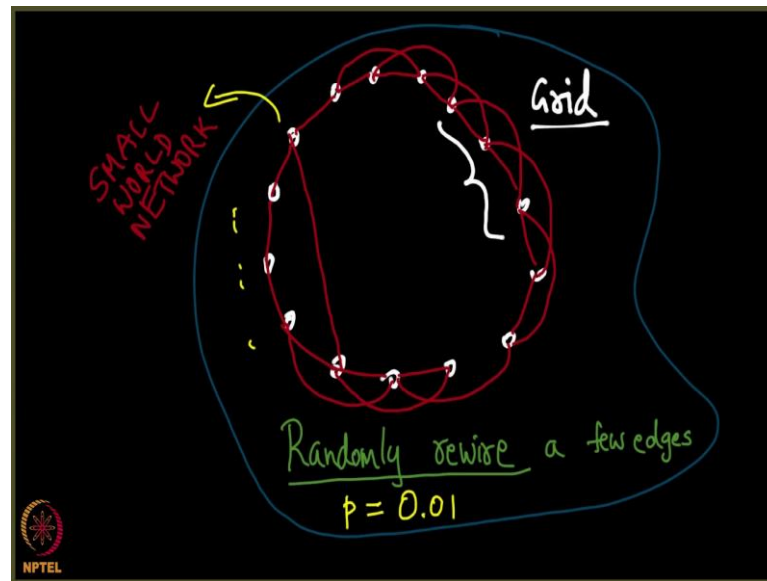 Grid
SMALL
WORLD
NETWORK
Randomly rewire a few edges
p = 0.01
NPTEL